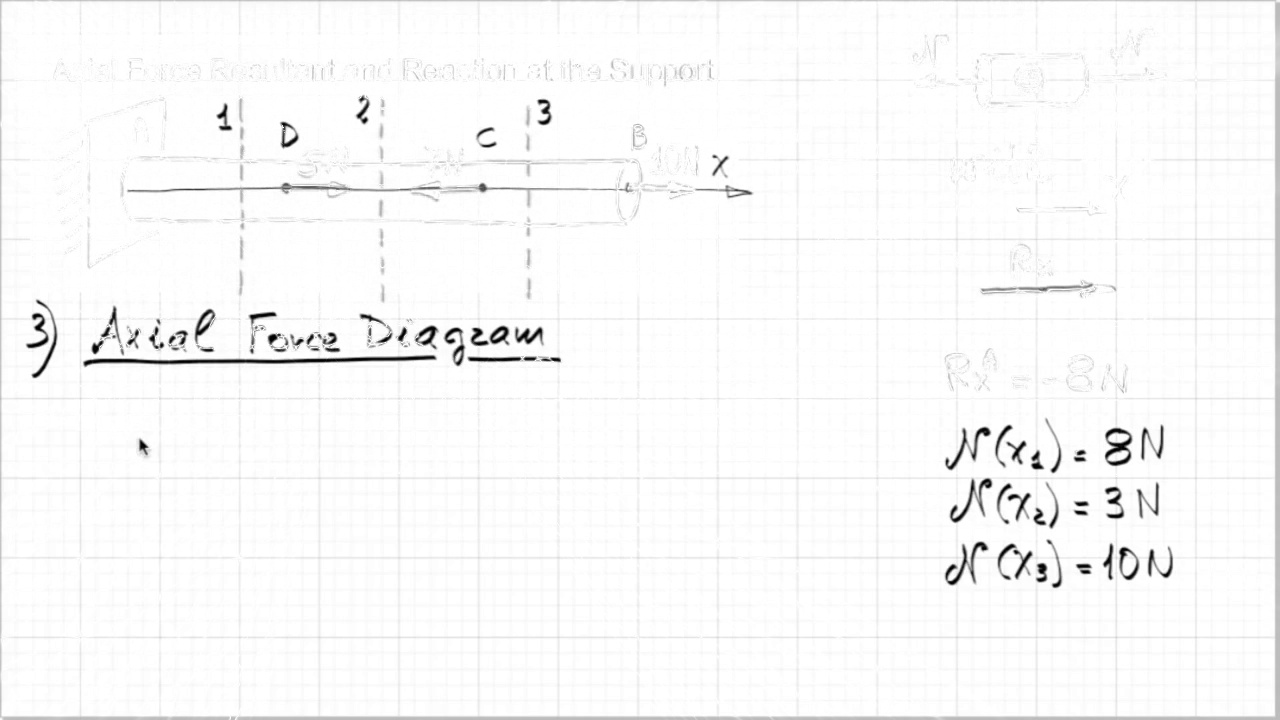 Axial Force Resultant and Reaction at the Support
N N
1 2 3
A D C B
5N 7N 10N X
x
Rx
3) Axial Force Diagram
Rx^A = -8N
N(x₁) = 8N
N(x₂) = 3N
N(x₃) = 10N